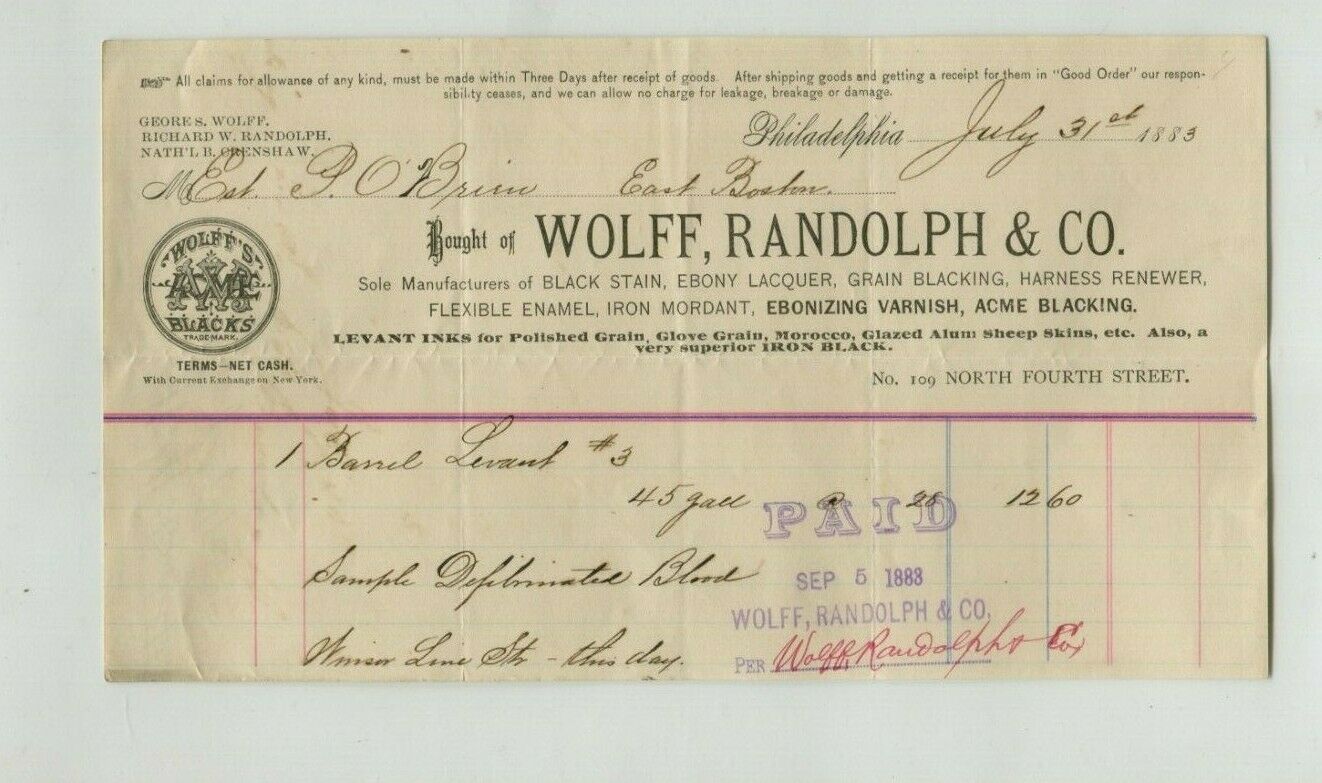 All claims for allowance of any kind, must be made within Three Days after receipt of goods. After shipping goods and getting a receipt for them in "Good Order" our respon-
sibility ceases, and we can allow no charge for leakage, breakage or damage.
GEORE S. WOLFF.
RICHARD W. RANDOLPH.
NATH'L B. CRENSHAW.
Philadelphia July 31st 1883
M Est. P. O'Brien East Boston.
Bought of WOLFF, RANDOLPH & CO.
Sole Manufacturers of BLACK STAIN, EBONY LACQUER, GRAIN BLACKING, HARNESS RENEWER,
FLEXIBLE ENAMEL, IRON MORDANT, EBONIZING VARNISH, ACME BLACKING.
LEVANT INKS for Polished Grain, Glove Grain, Morocco, Glazed Alum Sheep Skins, etc. Also, a
very superior IRON BLACK.
WOLFF'S
BLACKS
TRADE-MARK.
TERMS—NET CASH.
With Current Exchange on New York.
No. 109 NORTH FOURTH STREET.
1 Barrel Levant #3
45 gall @ 28 12 60
PAID
Sample Defibrinated Blood
SEP 5 1883
WOLFF, RANDOLPH & CO.
Winsor Line Str - this day.
PER Wolff, Randolph & Co